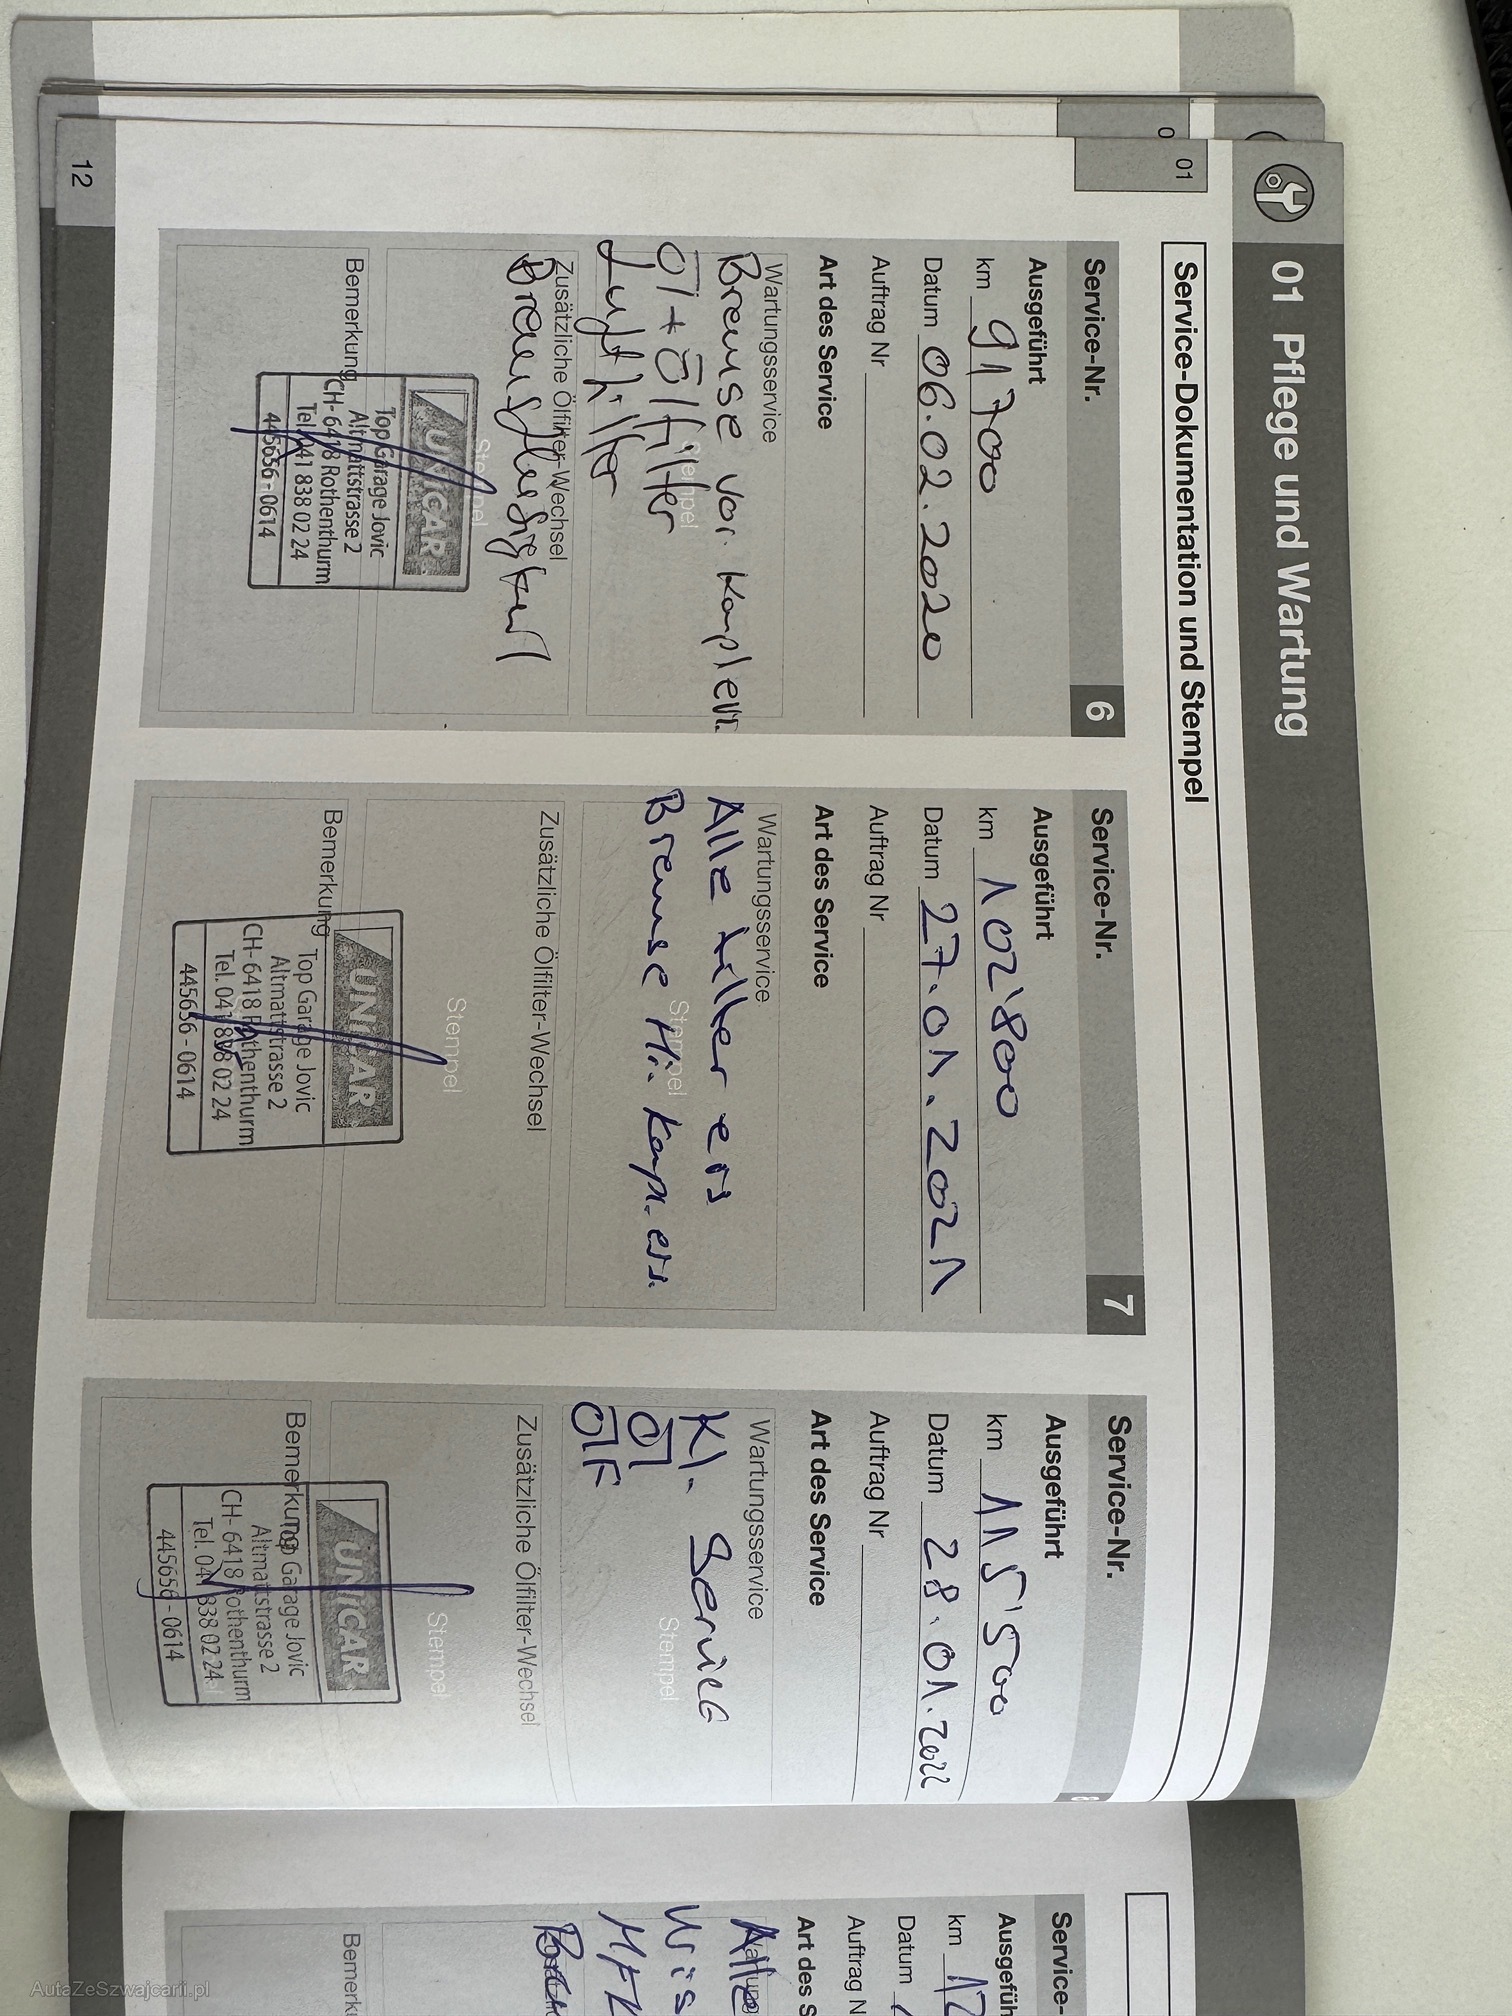 01 Pflege und Wartung
01
0
Service-Dokumentation und Stempel
Service-Nr. 6
Ausgeführt
km 91'700
Datum 06.02.2020
Auftrag Nr
Art des Service
Wartungsservice
Bremse vor. kompl ers.
Öl + Ölfilter
Stempel
Luftfilter
Zusätzliche Ölfilter-Wechsel
Bremsflüssigkeit
Stempel
UNICAR
Top Garage Jovic
Altmattstrasse 2
CH-6418 Rothenthurm
Tel. 041 838 02 24
445656 - 0614
Bemerkung
Service-Nr. 7
Ausgeführt
km 102'800
Datum 27.01.2021
Auftrag Nr
Art des Service
Wartungsservice
Alle Filter ers
Bremse Hi. kompl. ers.
Stempel
Zusätzliche Ölfilter-Wechsel
Stempel
UNICAR
Bemerkung
Top Garage Jovic
Altmattstrasse 2
CH-6418 Rothenthurm
Tel. 041 838 02 24
445656 - 0614
Service-Nr. 8
Ausgeführt
km 115'500
Datum 28.01.2022
Auftrag Nr
Art des Service
Wartungsservice
Kl. Service
Öl
ÖlF
Stempel
Zusätzliche Ölfilter-Wechsel
Stempel
UNICAR
Bemerkung
Top Garage Jovic
Altmattstrasse 2
CH-6418 Rothenthurm
Tel. 041 838 02 24
445656 - 0614
12
Service-
Ausgefüh
km 12
Datum
Auftrag N
Art des S
Alle
MFK
Bemerk
AutaZeSzwajcarii.pl